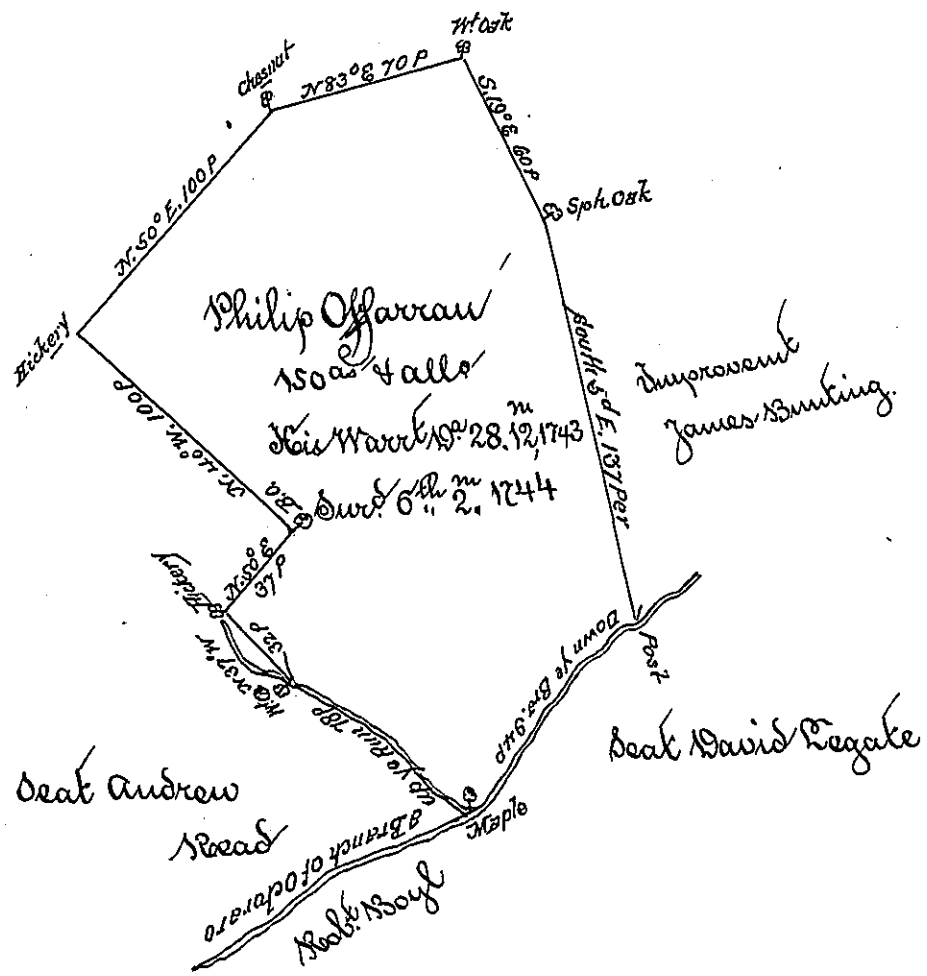 Wt Oak
Chesnut
N 83° E 70 P
S. 19° E 60 P
Sph. Oak
N. 50° E. 100 P
Hickery
Philip Offarran
150 as & allo
His Warrt Da. 28. 12 m, 1743
Surd. 6th 2 m, 1744
Improvemt
James Bunting.
South 5 d E 137 Per
N. 40° W. 100 P
B.O.
N. 50° E
37 P
Hickery
32 P
N 37° W
W.O.
up ye Run 78 P
Down ye Bra. 94 P
Post
Seat David Legate
Seat Andrew
Read
Maple
a Branch of Octoraro
Robt. Boyl